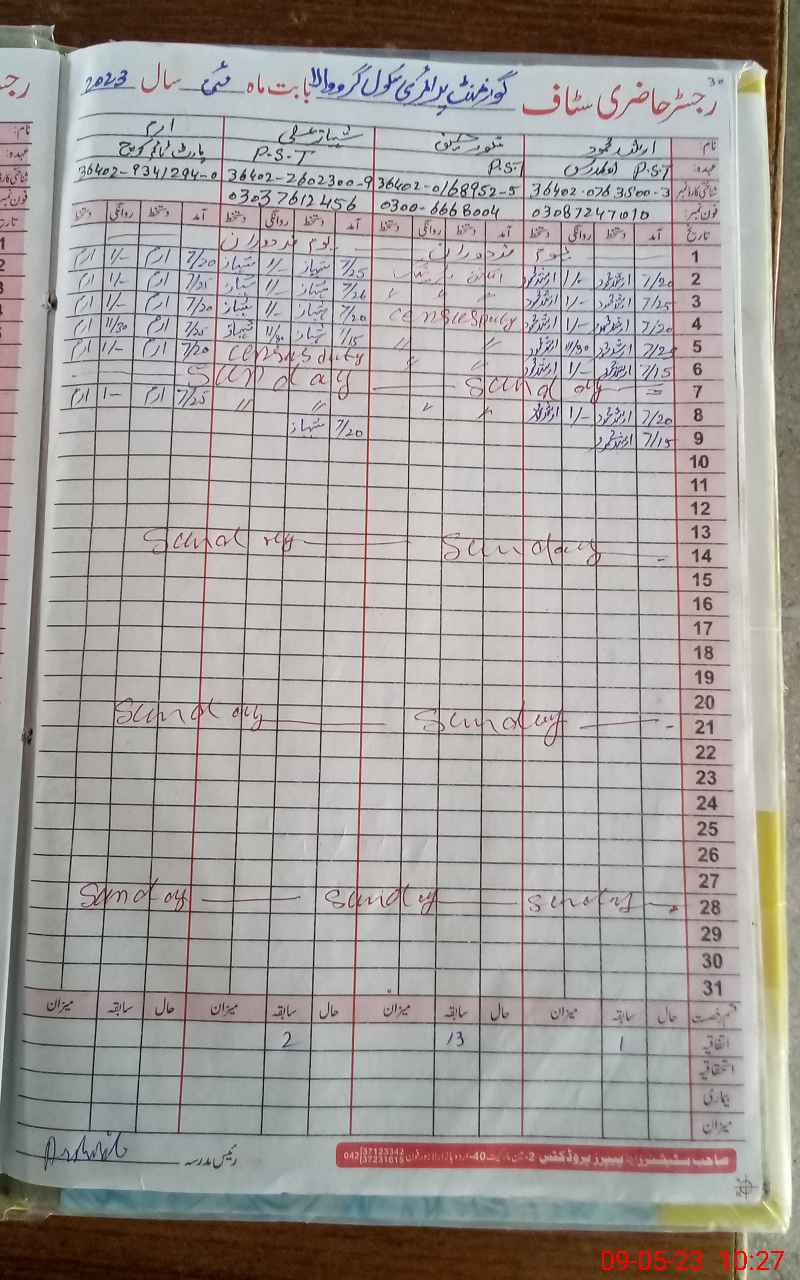 رجسٹر حاضری سٹاف گورنمنٹ پرائمری سکول گرووالا بابت ماہ مئی سال 2023
30
نام ارشد محمود تنویر شہباز علی ارم
عہدہ P.S.T P.S.T P.S.T پارٹ ٹائم کوچ
36402-0763500-3 36402-0168952-5 36402-2602300-9 36402-9341294-0
فون نمبر 03087247010 0300-6668004 03037612456
تاریخ آمد دستخط روانگی دستخط آمد دستخط روانگی دستخط آمد دستخط روانگی دستخط آمد دستخط روانگی دستخط
1 یوم مزدوران یوم مزدوران
2 7/20 ارشد محمود 1/- ارشد محمود 7/25 شہباز 1/- شہباز 7/20 ارم 1/- ارم
3 7/25 ارشد محمود 1/- ارشد محمود " " 7/26 شہباز 1/- شہباز 7/25 ارم 1/- ارم
4 7/20 ارشد محمود 1/- ارشد محمود censusputy 7/20 شہباز 1/- شہباز 7/20 ارم 1/- ارم
5 7/25 ارشد محمود 11/30 ارشد محمود " " 7/15 شہباز 11/30 شہباز 7/25 ارم 11/30 ارم
6 7/15 ارشد محمود 1/- ارشد محمود " " census duty 7/20 ارم 1/- ارم
7 Sunday Sunday
8 7/20 ارشد محمود 1/- ارشد محمود " " " " 7/25 ارم 1- ارم
9 7/15 ارشد محمود 7/20 شہباز
10
11
12
13
14 Sunday Sunday
15
16
17
18
19
20
21 Sunday Sunday
22
23
24
25
26
27
28 Sunday Sunday Sunday
29
30
31
قسم رخصت حال سابقہ میزان حال سابقہ میزان حال سابقہ میزان حال سابقہ میزان
اتفاقیہ 1 13 2
استحقاقیہ
بیماری
میزان
رئیس مدرسہ
صاحب سٹیشنرز اینڈ پیپرز پروڈکٹس 042 37123342 37231615
09-05-23 10:27